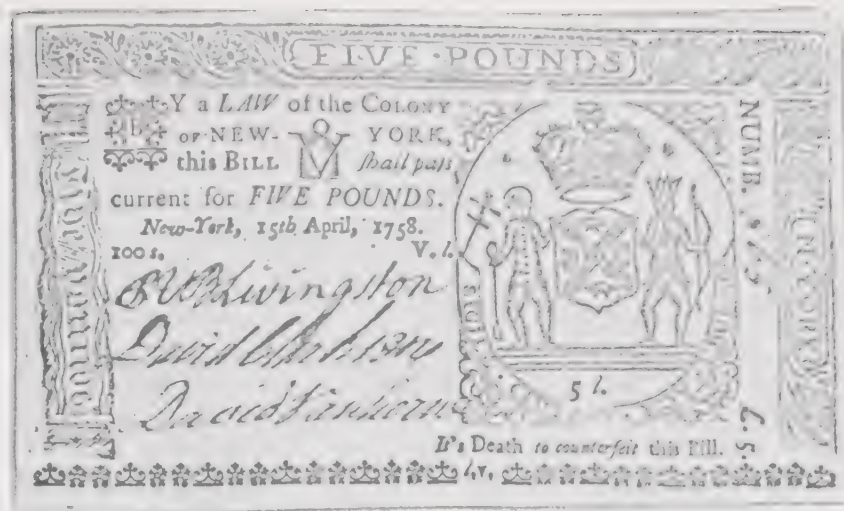 FIVE·POUNDS
BY a LAW of the COLONY
OF NEW-YORK,
this BILL shall pass
current for FIVE POUNDS.
New-York, 15th April, 1758.
100 s. V. l.
Livingston
David Clarkson
David Vanhorne
5 l.
SIGIL
NUMB.
L. 5.
NEW-YORK
It's Death to counterfeit this Bill.
l.v.